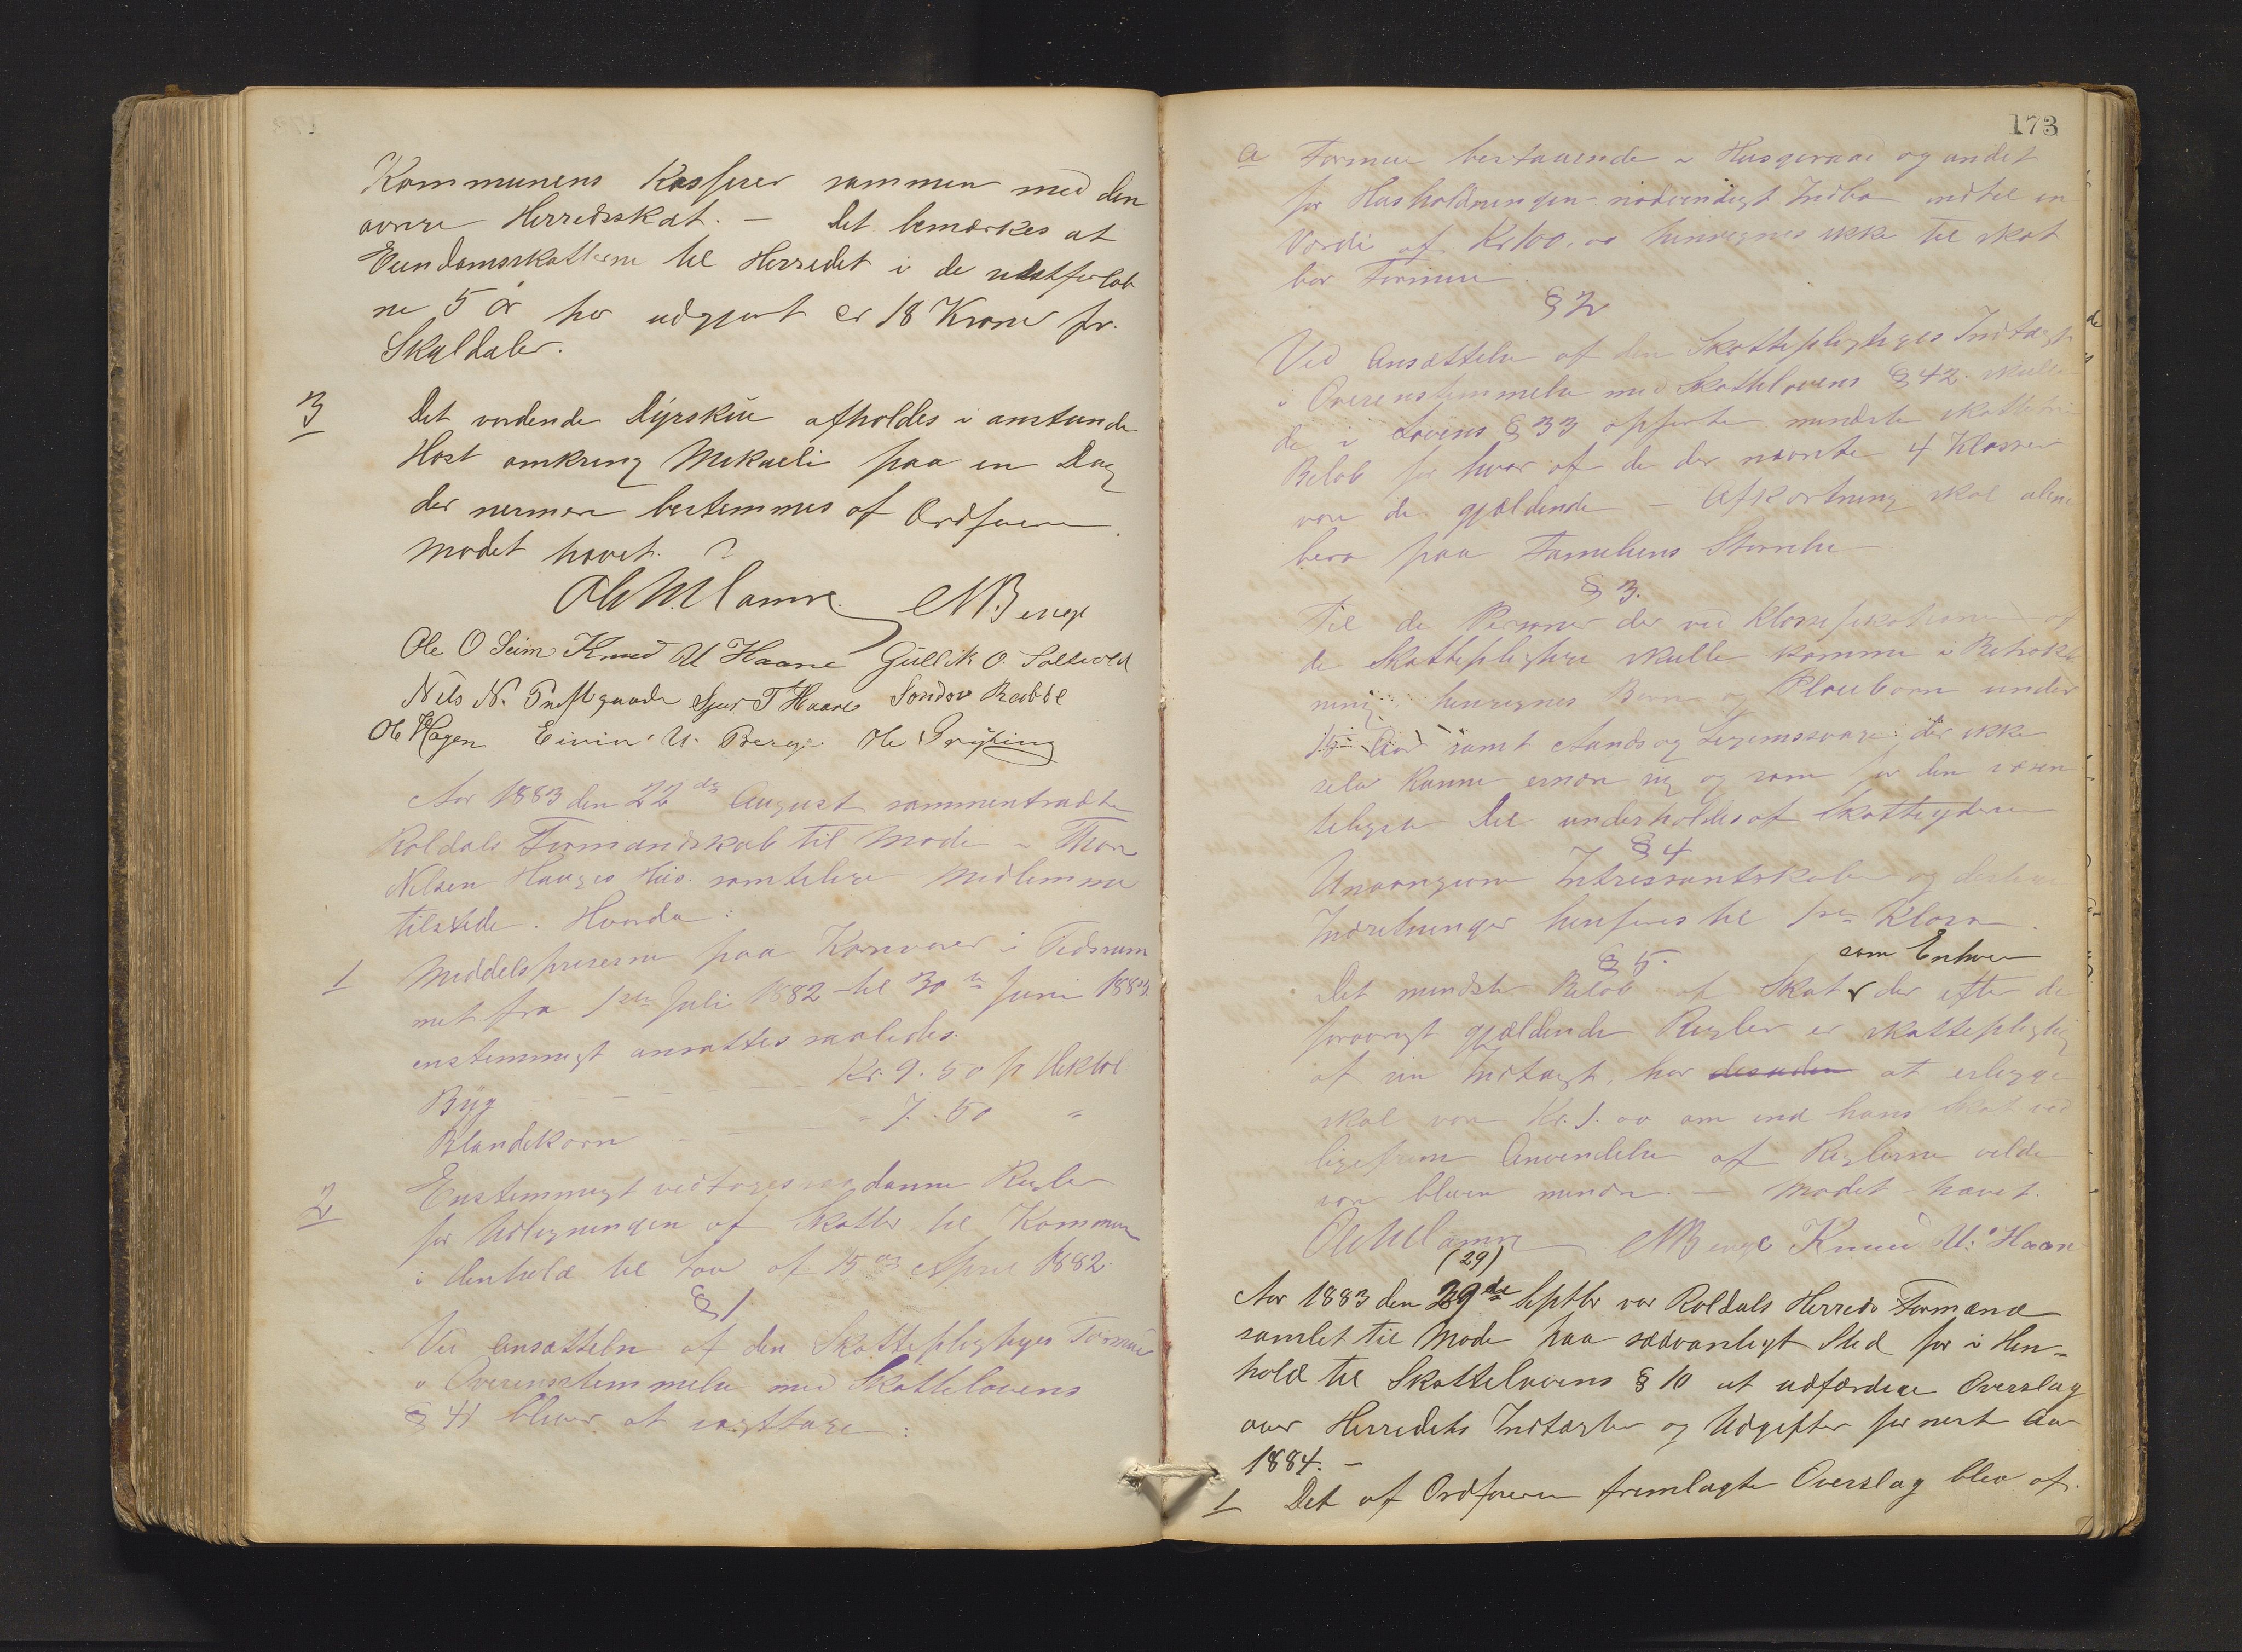 Kommunens Kasserer sammen med den
øvrige Herredsskat. – Det bemærkes at
Eiendomsskatterne til Herredet i de sidstforløb
ne 5 år har udgjort ca 18 Kroner pr.
Skyldaler.
3 Det vordende Dyrskue afholdes i anstunde
Høst omkring Mikaeli paa en Dag
der nermere bestemmes af Ordføreren.
Mødet hævet.
Ole M Hamre. N Berge
Ole O Seim Knud U Haare Gullik O.
Nils N. Prestgaard Sjur T Haare Sondov Rabbe
Ole Hagen Eivin U. Berge. Ole Gryting
Aar 1883 den 22de August sammentraadte
Røldals Formandskab til Møde i Thore
Nilsen Hauges Hus. samtlige Medlemmer
tilstede. Hvorda:
1 Middelspriserne paa Kornvarer i Tidsrum
met fra 1ste Juli 1882 til 30te Juni 1883
enstemmigt ansattes saaledes.
Byg Kr. 9.50 pr Hektol
Blandekorn " 7.50 "
2 Enstemmigt vedtoges saadanne Regler
for Udligningen af Skatter til Kommunen
i Henhold til Lov af 15de April 1882.
§ 1
Ved Ansættelse af den Skattepligtiges Formue
i Overensstemmelse med Skattelovens
§ 41 bliver at iagttage:
173
a Formue bestaaende i Husgeraad og andet
for Husholdningen nødvendigt Indbo indtil en
Værdi af Kr 100,00 henregnes ikke til skat
bar Formue.
§ 2
Ved Ansættelse af den Skattepligtiges Indtægt
i Overensstemmelse med Skattelovens § 42. skulle
de i Lovens § 33 opførte mindste skattefrie
Beløb for hver af de der nævnte 4 Klasser
være de gjældende – Afkortning skal alene
bero paa Familiens Størrelse
§ 3.
Til de Personer der ved Klassifikationen af
de Skattepligtige skulle komme i Betrakt
ning henregnes Børn og Pleiebørn under
15 Aar samt Aands og Legemssvage der ikke
selv kunne ernære sig og som for den væsen
tligste Del underholdes af Skatteyderen
§ 4
Unavngivne Intressentskaber og deslige
Indretninger henføres til 1ste Klasse.
§ 5.
som Enhver
Det mindste Beløb af Skat der efter de
forøvrigt gjældende Regler er skattepligtig
af sin Indtægt, har desuden at erlægge
skal være Kr. 1.00 om end hans Skat ved
ligefrem Anvendelse af Reglerne vilde
være bleven mindre. – Mødet hævet.
Ole M Hamre N Berge Knud U. Haare
(29)
Aar 1883 den 29de Septbr var Røldals Herreds Formænd
samlet til Møde paa sædvanligt Sted for i Hen-
hold til Skattelovens § 10 at udfærdige Overslag
over Herredets Indtægter og Udgifter for nest Aar
1884. –
1 Det af Ordføreren fremlagte Overslag blev af.